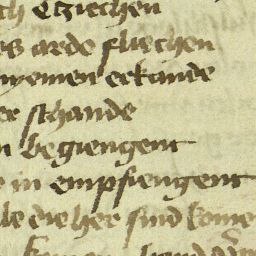 ch Etziechen
es arde fliechen
nyemen erkande
er schande
n begiengent
e in empfiengent
lle die her sind komen